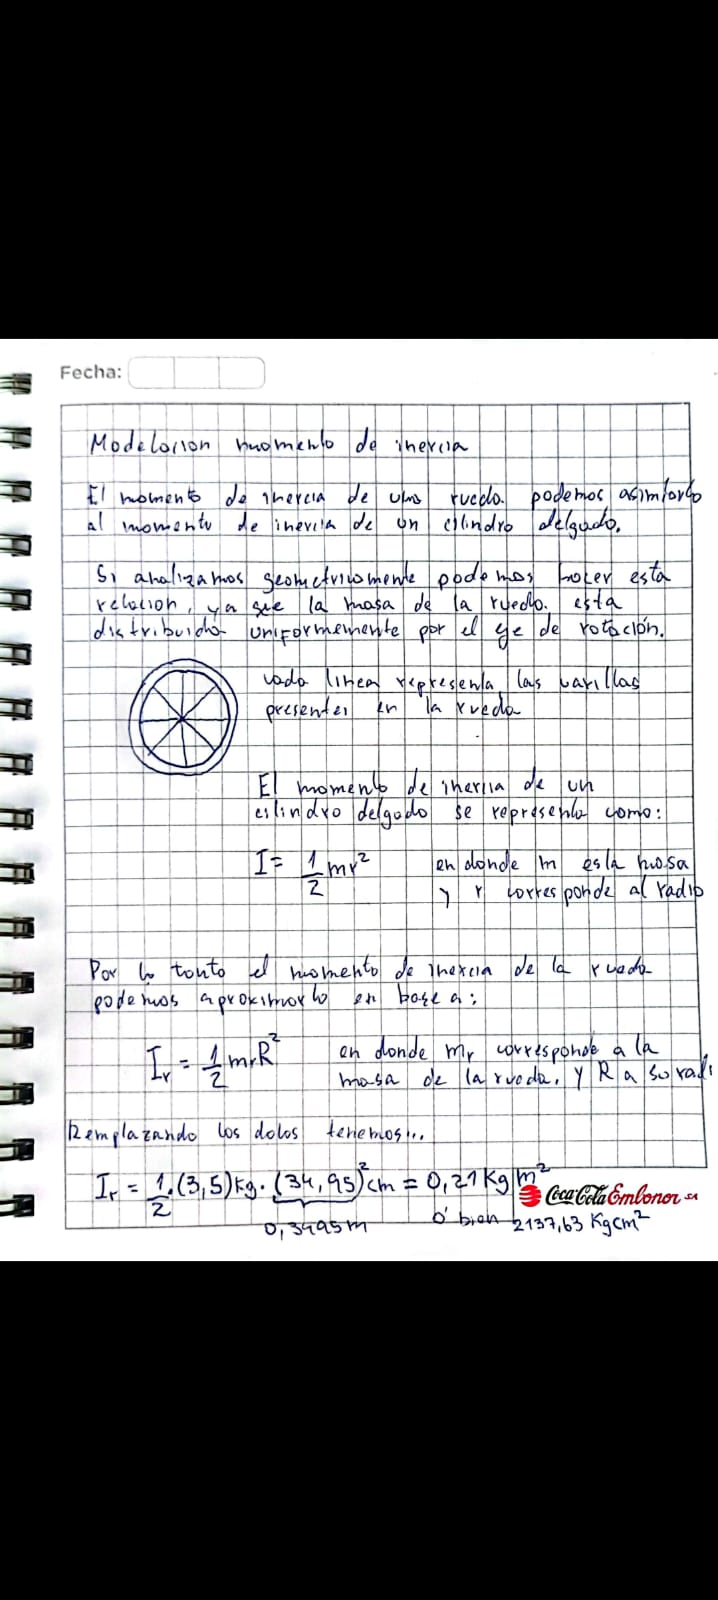 Fecha:
Modelacion momento de inercia
El momento de inercia de una rueda podemos asimilarlo
al momento de inercia de un cilindro delgado.
Si analizamos geometricamente podemos hacer esta
relacion, ya que la masa de la rueda esta
distribuida uniformemente por el eje de rotación.
cada linea representa las varillas
presentes en la rueda
El momento de inercia de un
cilindro delgado se representa como:
I = 1/2 mr² en donde m es la masa
y r corresponde al radio
Por lo tanto el momento de inercia de la rueda
podemos aproximarlo en base a:
Ir = 1/2 mrR² en donde mr corresponde a la
masa de la rueda, y R a su radi
Remplazando los datos tenemos...
Ir = 1/2 · (3,5)kg · (34,95)²cm = 0,21 Kg m²
Coca-Cola Embonor SA
0,3495m ó bien 2137,63 Kgcm²